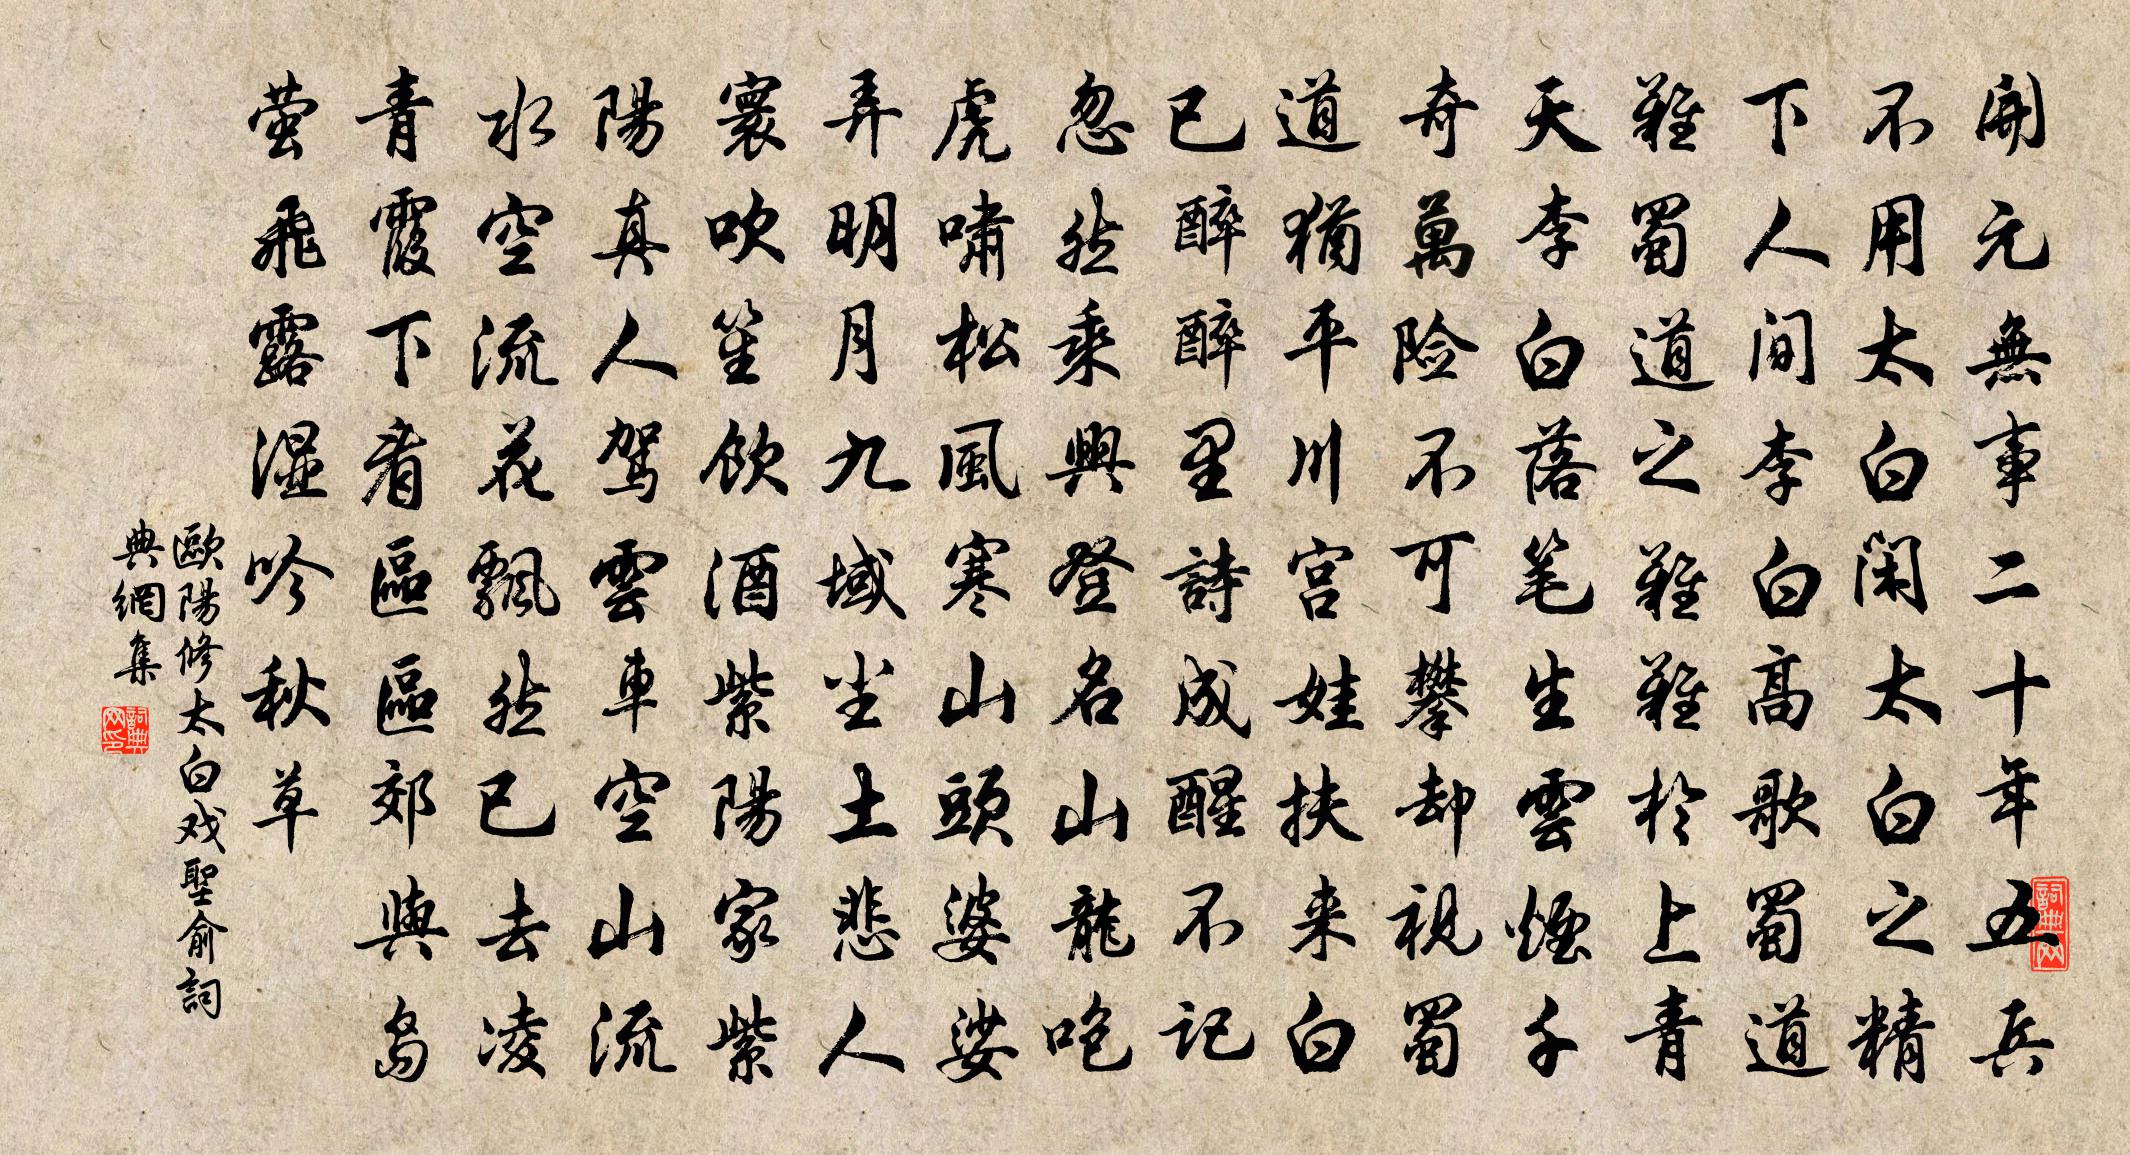 開元無事二十年五兵
不用太白閑太白之精
下人间李白高歌蜀道
難蜀道之難難於上青
天李白落笔生雲煙千
奇萬险不可攀却視蜀
道猶平川宫娃扶来白
已醉醉里詩成醒不記
忽然乘興登名山龍咆
虎嘯松風寒山頭婆娑
弄明月九域尘土悲人
寰吹笙飲酒紫陽家紫
陽真人驾雲車空山流
水空流花飄然已去凌
青霞下看區區郊與島
萤飛露濕吟秋草
歐陽修太白戏聖俞詞
典網集
詞典网
詞典网印